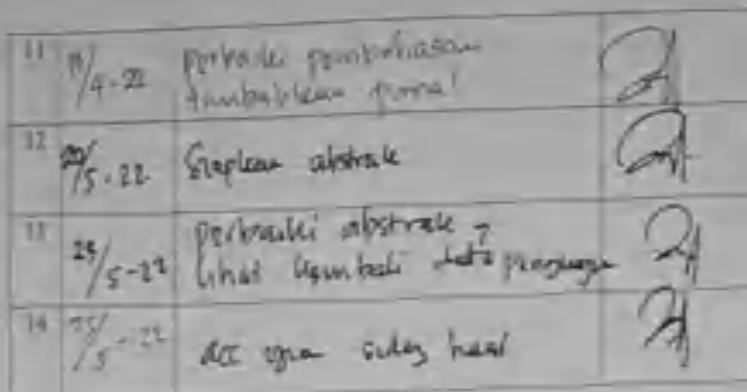 11 11/4-22 perbaiki pembahasan
tambahkan jurnal
12 20/5.22 Siapkan abstrak
13 24/5-22 perbaiki abstrak,
lihat kembali data
14 25/5-22 acc ujian sidang hasil